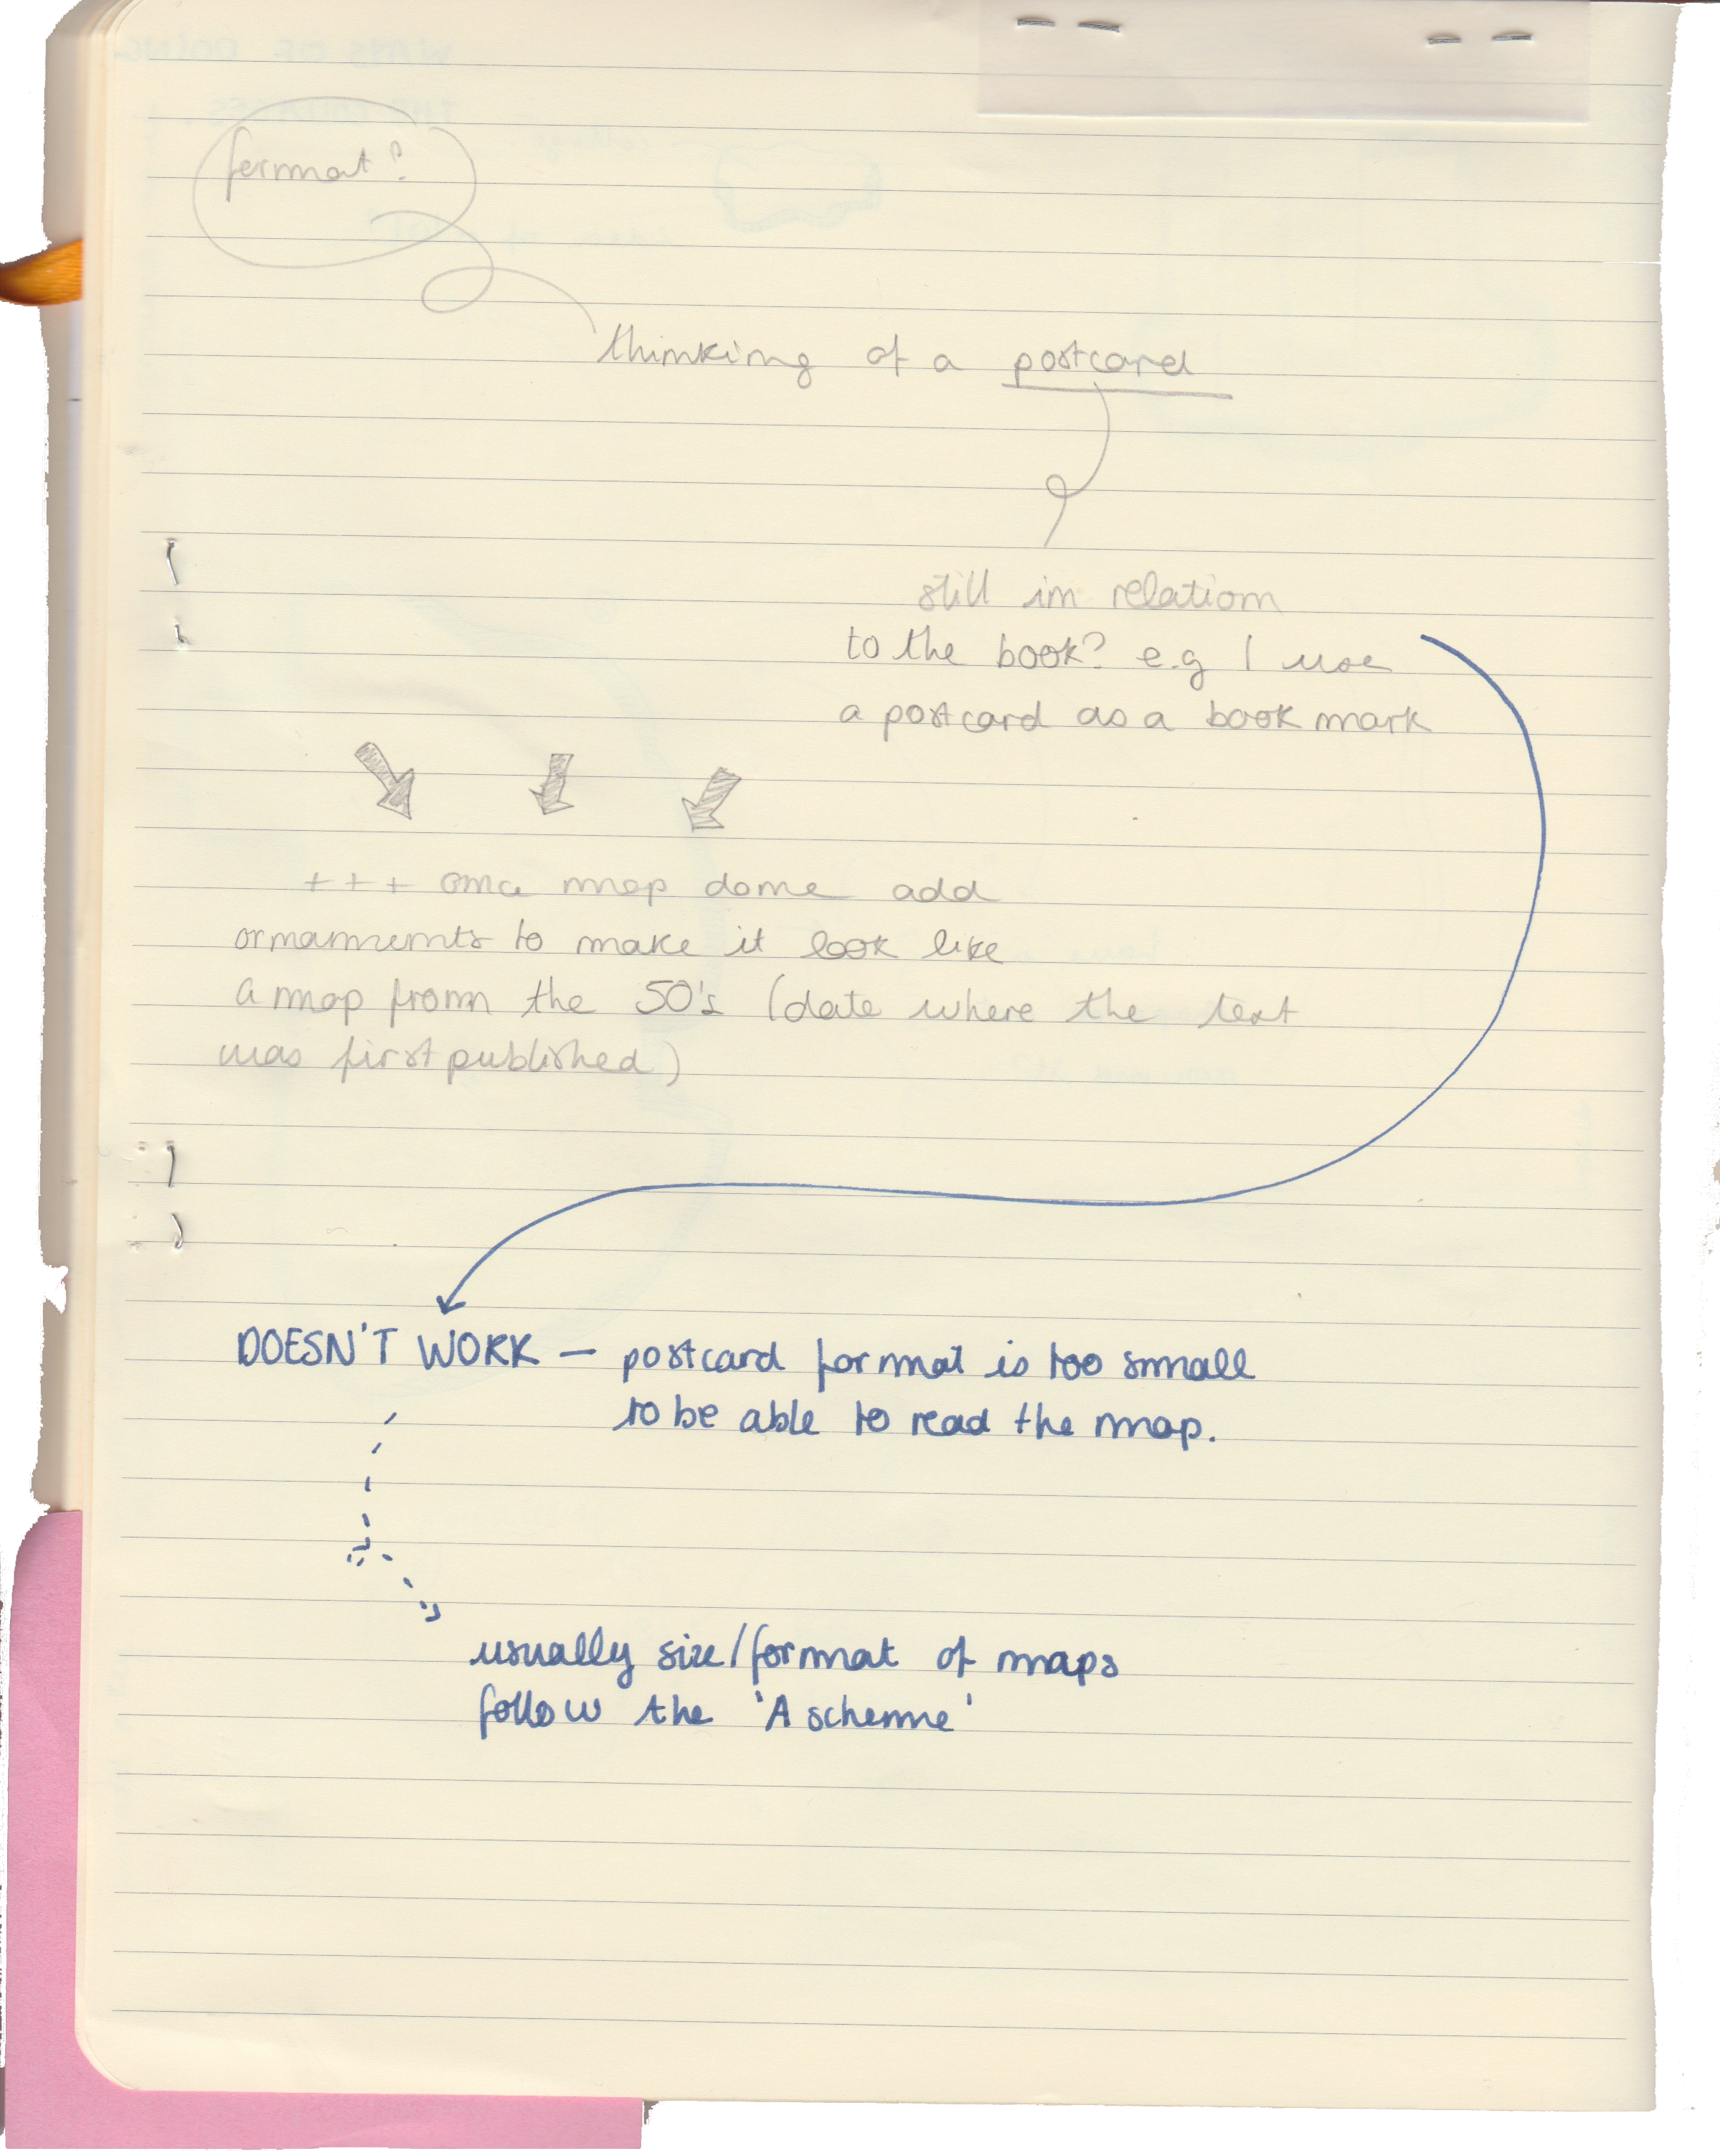 format?
thinking of a postcard
still in relation
to the book? e.g I use
a postcard as a book mark
+++ once map done add
ornamments to make it look like
a map from the 50's (date where the text
was first published)
DOESN'T WORK – postcard format is too small
to be able to read the map.
usually size/format of maps
follow the 'A scheme'